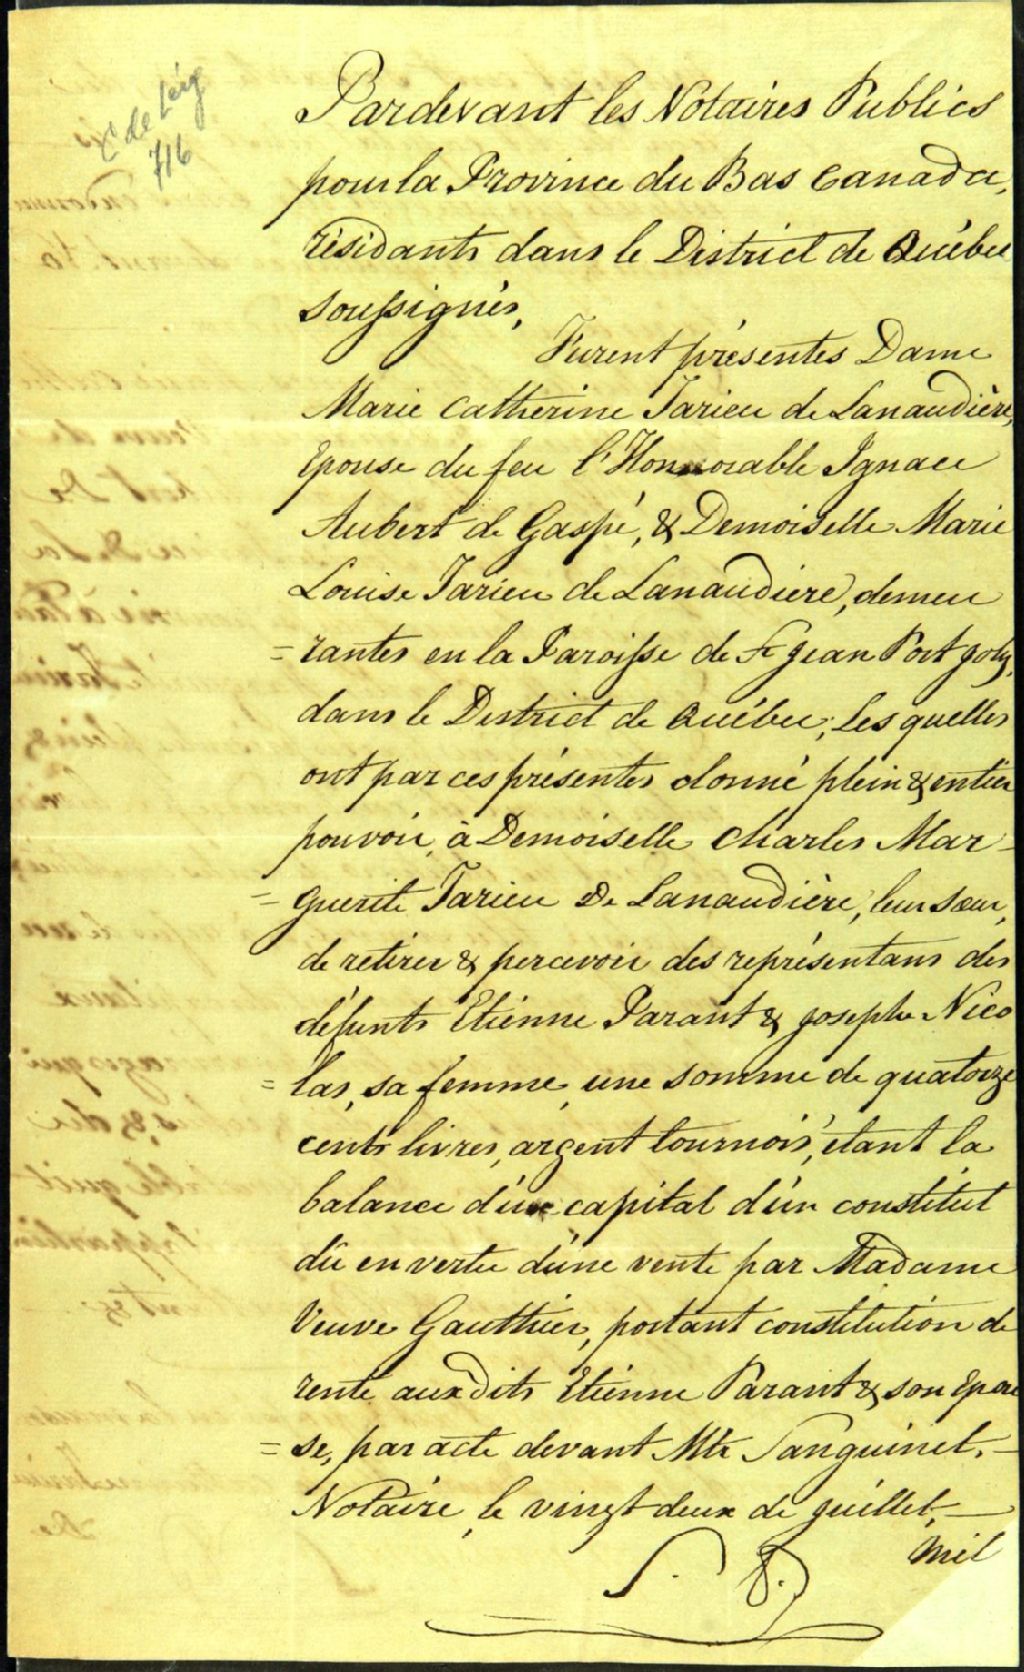 716
Pardevant les Notaires Publics
pour la Province du Bas Canada,
résidants dans le District de Québec
soussignés,
Furent présentes Dame
Marie Catherine Tarieu de Lanaudière,
Epouse du feu l'Honnorable Ignace
Aubert de Gaspé, & Demoiselle Marie
Louise Tarieu de Lanaudiere, demeu
= rantes en la Paroisse de St Jean Port Joly,
dans le District de Québec; Les quelles
ont par ces présentes donné plein & entier
pouvoir à Demoiselle Charles Mar -
= guerite Tarieu De Lanaudière, leur sœur,
de retirer & percevoir des représentans des
défunts Etienne Parant & Joseph Nico
= las, sa femme, une somme de quatorze
cents livres, argent tournois, etant la
balance d'un capital d'un constitut
dû en vertu d'une vente par Madame
Veuve Gauthier, portant constitution de
rente auxdits Etienne Parant & son Epou
= se, par acte devant Mtr Sanguinet, -
Notaire, le vingt deux de Juillet, -
mil